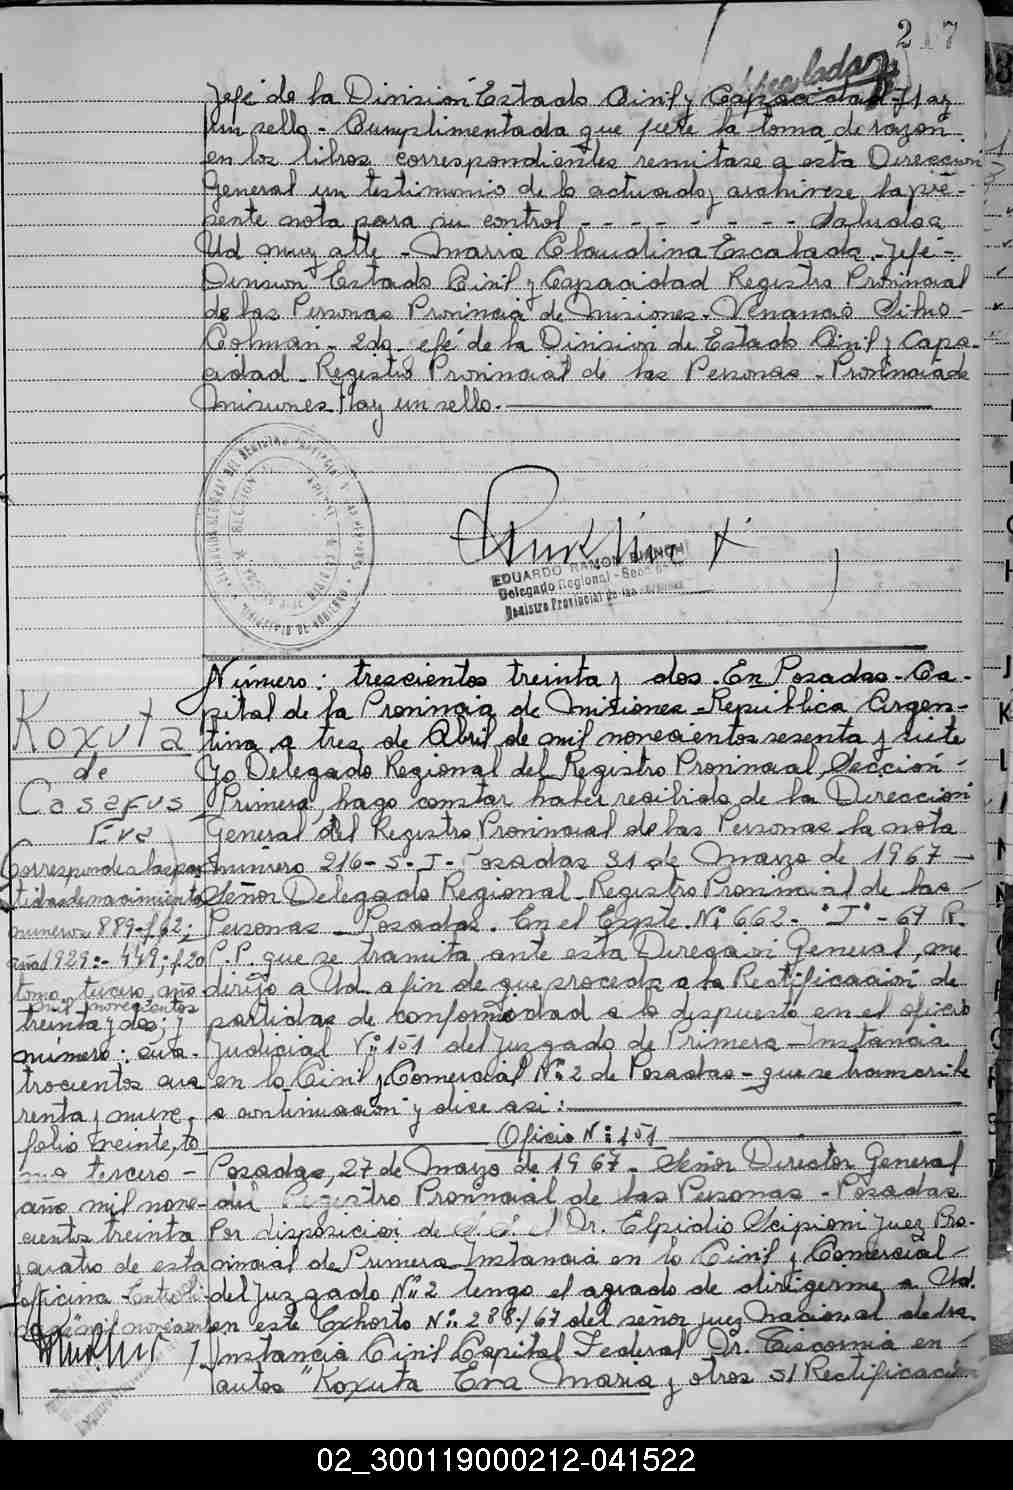 217
Escalada
Jefe de la Division Estado Civil y Capacidad - Hay
un sello - Cumplimentada que fuere la toma de razon
en los libros correspondientes remitase a esta Direccion
General un testimonio de lo actuado y archivese la pre-
sente nota para su control - - - - - - - - Saluda a
Ud muy atte - Maria Claudina Escalada - Jefe -
Division Estado Civil y Capacidad Registro Provincial
de las Personas Provincia de Misiones - Venancio
Colman - 2do Jefe de la Division de Estado Civil y Capa-
cidad - Registro Provincial de las Personas - Provincia de
Misiones Hay un sello.
EDUARDO RAMON BIANCHI
Delegado Regional -
Registro Provincial de las
Número: trescientos treinta y dos - En Posadas - Ca-
pital de la Provincia de Misiones - Republica Argen-
tina, a tres de Abril de mil novecientos sesenta y siete
Yo Delegado Regional del Registro Provincial, Sección
Primera, hago constar haber recibido de la Direccion
General del Registro Provincial de las Personas la nota
número 216 - S - I - Posadas 31 de Marzo de 1967 -
Señor Delegado Regional - Registro Provincial de las
Personas - Posadas. En el Expte. Nº 662 - "I" - 67 R.
P.P. que se tramita ante esta Direccion General, me
dirijo a Ud a fin de que proceda a la Rectificación de
partidas de conformidad a lo dispuesto en el oficio
Judicial Nº 151 del Juzgado de Primera - Instancia
en lo Civil y Comercial Nº 2 de Posadas - que se transcribe
a continuacion y dice asi:
Oficio Nº 151
Posadas, 27 de Marzo de 1967 - Señor Director General
del Registro Provincial de las Personas - Posadas
Por disposicion de S.S. el Dr. Elpidio Scipioni Juez Pro-
vincial de Primera Instancia en lo Civil y Comercial
del Juzgado Nº 2 tengo el agrado de dirigirme a Ud.
en este Exhorto Nº 288/67 del señor juez Nacional de 1ra.
Instancia Civil Capital Federal Dr. en
autos "Koxuta Eva Maria y otros S/ Rectificació
Koxuta
de
Casafus
Eva
Corresponde a las par
tidas de nacimiento
numeros 889 - f 62;
año 1929: - 449; f. 20
tomo tercero, año
mil novecientos
treinta y dos; y
número: cua-
trocientos cua
renta y nueve,
folio treinta, to
mo tercero -
año mil nove-
cientos treinta
y cuatro de esta
oficina - Entre li-
neas "mil novecien
02_300119000212-041522